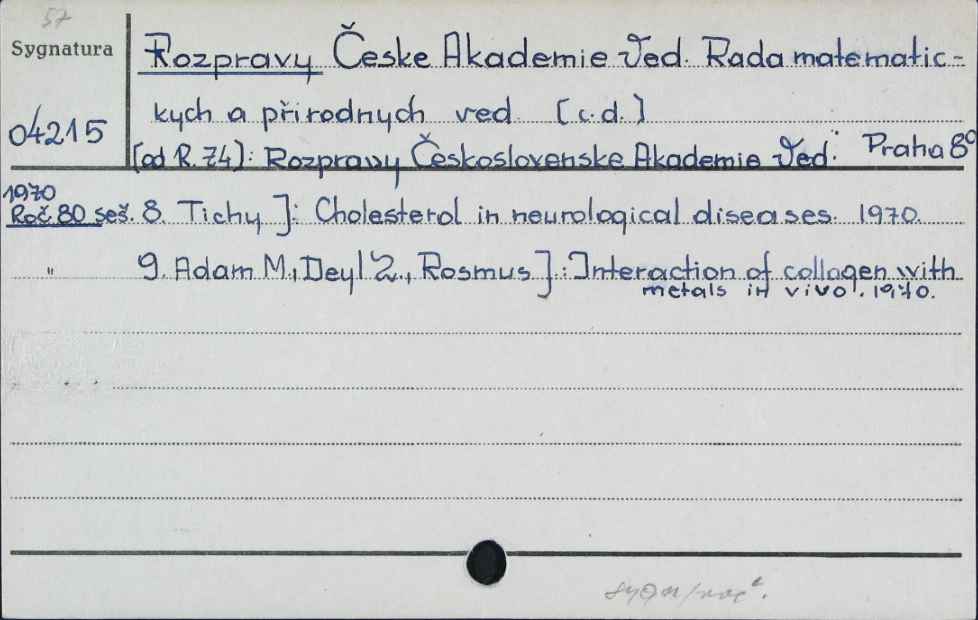 57
Sygnatura
Rozpravy Česke Akademie Ved. Rada matematic-
kych a přirodnych ved [c.d.]
04215
[od R. 74]: Rozpravy Československe Akademie Ved. Praha 8°
1970
Roč. 80 seš. 8. Tichy J: Cholesterol in neurological diseases. 1970.
" 9. Adam M., Deyl Z., Rosmus J.: Interaction of collagen with
metals in vivo. 1970.